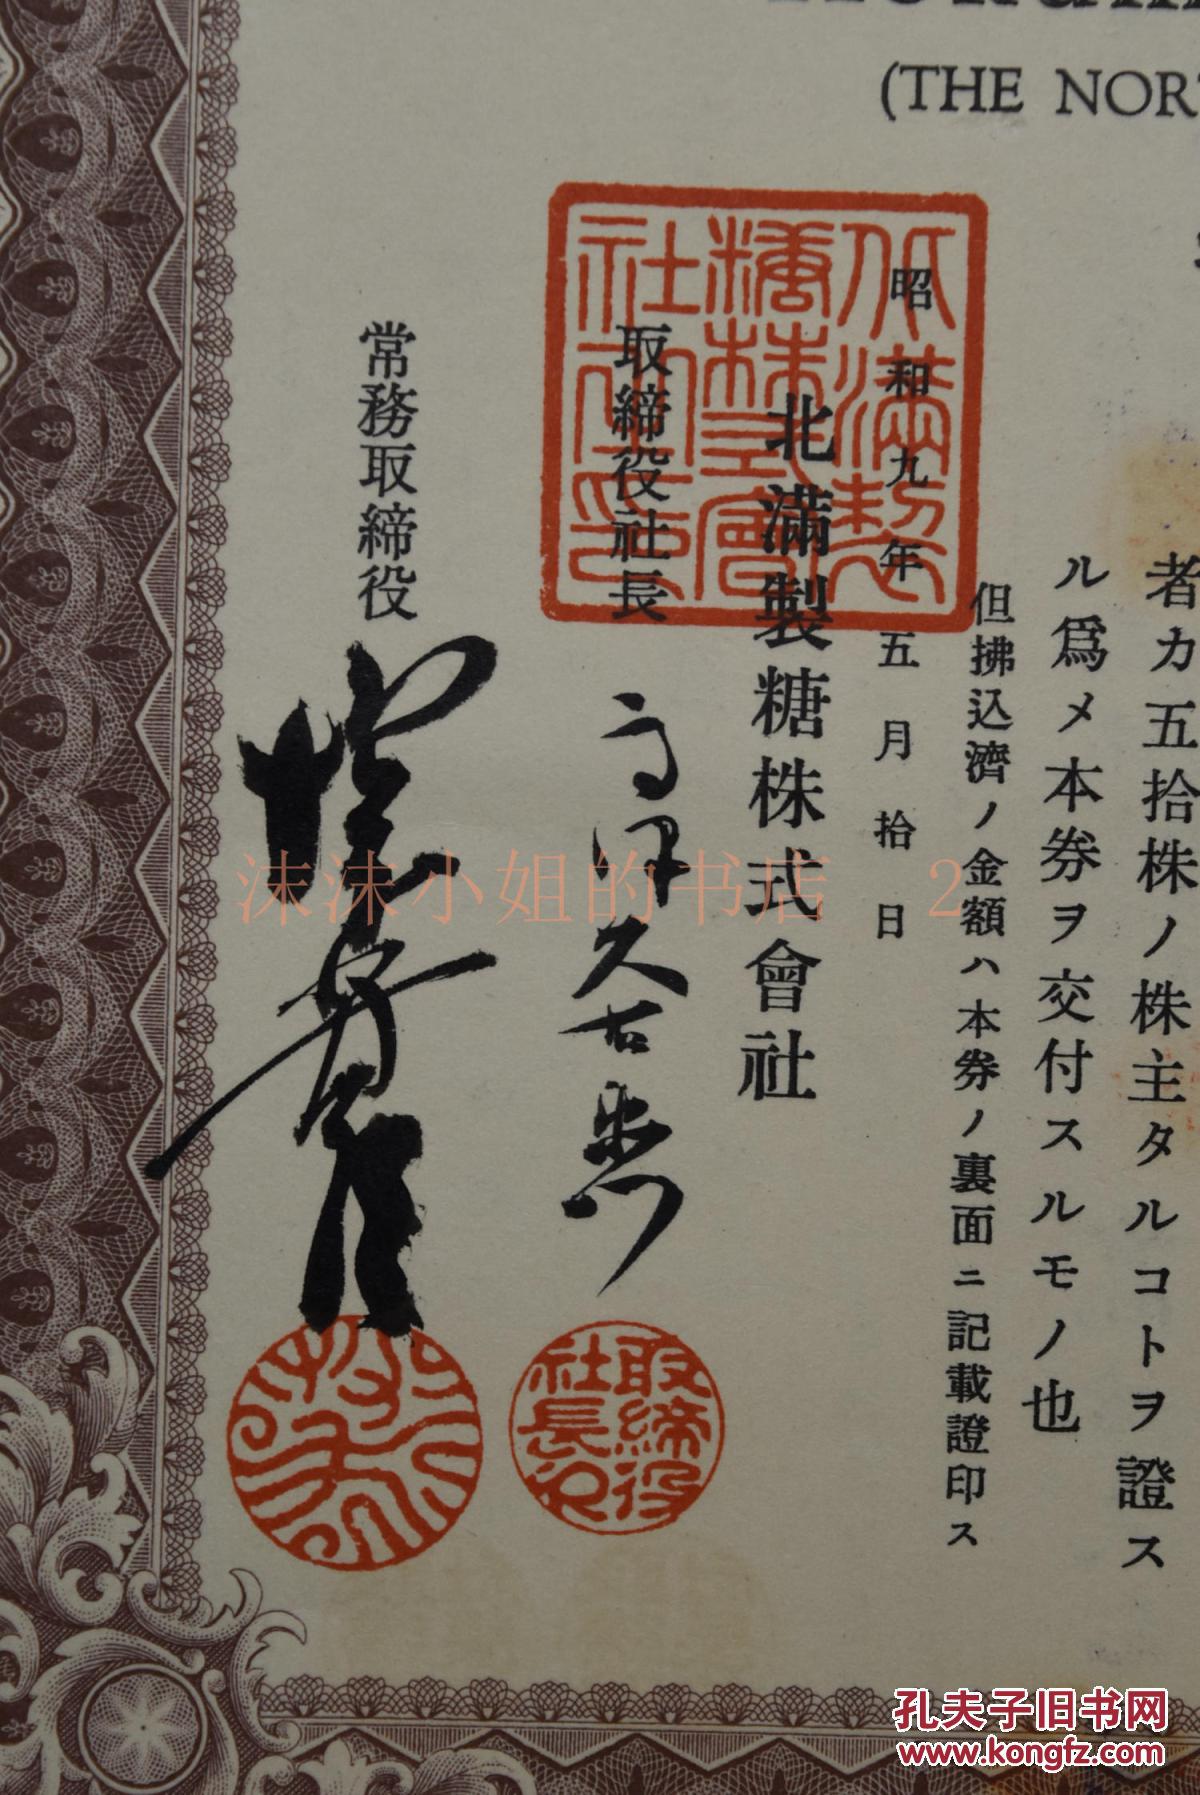 (THE NOR
者カ五拾株ノ株主タルコトヲ證ス
ル爲メ本券ヲ交付スルモノ也
但拂込濟ノ金額ハ本券ノ裏面ニ記載證印ス
昭和九年五月拾日
北滿製糖株式會社
取締役社長
高津久右衛門
常務取締役
北滿製
糖株式會
社之印
取締役
社長之印
沫沫小姐的书店 2
孔夫子旧书网
www.kongfz.com